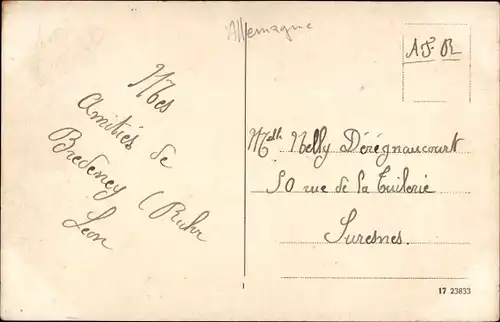 Allemagne
A.F. R
Mes
Amitiés de
Bredeney (Ruhr
Léon
Melle Nelly Dérégnaucourt
50 rue de la Tuilerie
Suresnes.
17 23833